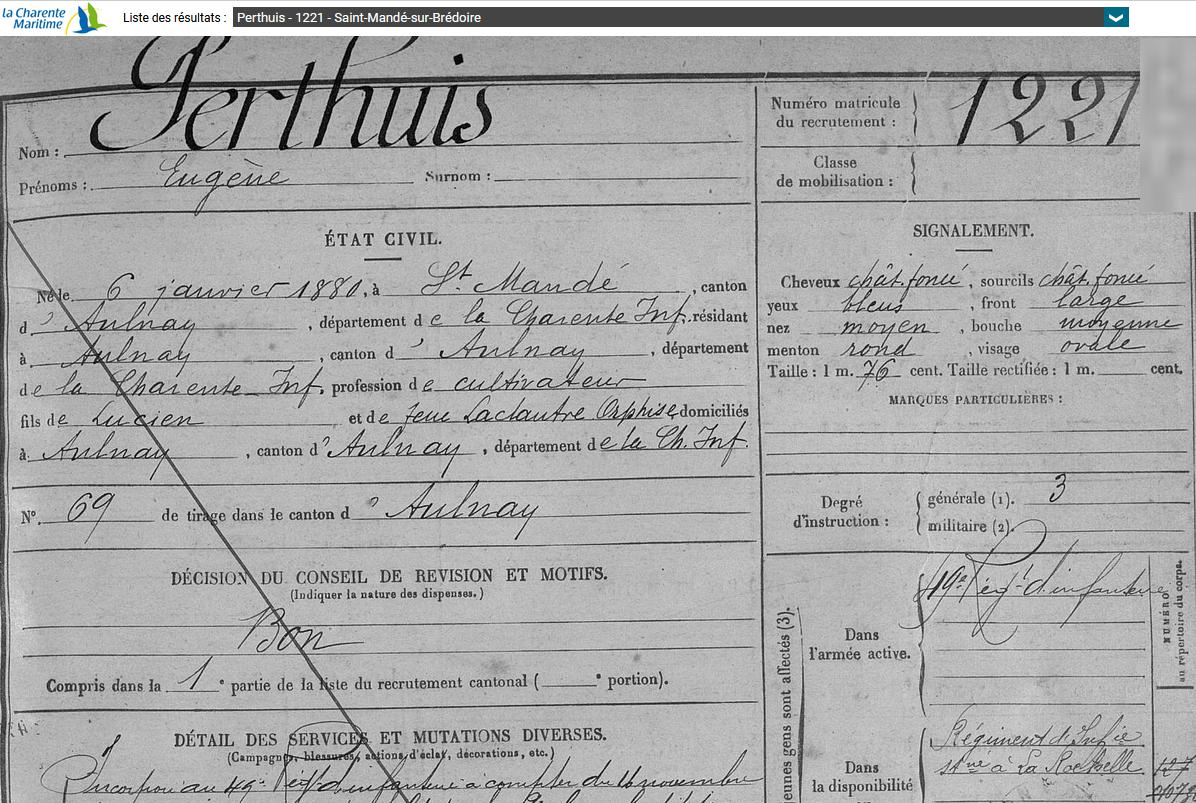 la Charente Maritime
Liste des résultats : Perthuis - 1221 - Saint-Mandé-sur-Brédoire
Nom : Perthuis
Prénoms : Eugène Surnom :
Numéro matricule du recrutement : 1221
Classe de mobilisation :
ÉTAT CIVIL.
Né le 6 janvier 1880, à St Mandé, canton
d' Aulnay, département de la Charente Inf. résidant
à Aulnay, canton d' Aulnay, département
de la Charente Inf. profession de cultivateur
fils de Lucien et de feue Orphise, domiciliés
à Aulnay, canton d' Aulnay, département de la Ch. Inf.
N° 69 de tirage dans le canton d' Aulnay
DÉCISION DU CONSEIL DE REVISION ET MOTIFS.
(Indiquer la nature des dispenses.)
Bon
Compris dans la 1e partie de la liste du recrutement cantonal ( e portion).
DÉTAIL DES SERVICES ET MUTATIONS DIVERSES.
(Campagnes, blessures, actions d'éclat, décorations, etc.)
Incorporé au 49e Régt d'infanterie à compter du novembre
SIGNALEMENT.
Cheveux chât. foncé, sourcils chât. foncé
yeux bleus, front large
nez moyen, bouche moyenne
menton rond, visage ovale
Taille : 1 m. 76 cent. Taille rectifiée : 1 m. cent.
MARQUES PARTICULIÈRES :
Degré d'instruction :
générale (1). 3
militaire (2).
jeunes gens sont affectés (3).
Dans l'armée active.
49e Régt d'infanterie
NUMÉRO
au répertoire du corps.
Dans la disponibilité
Régiment d'Infie
stné à La Rochelle